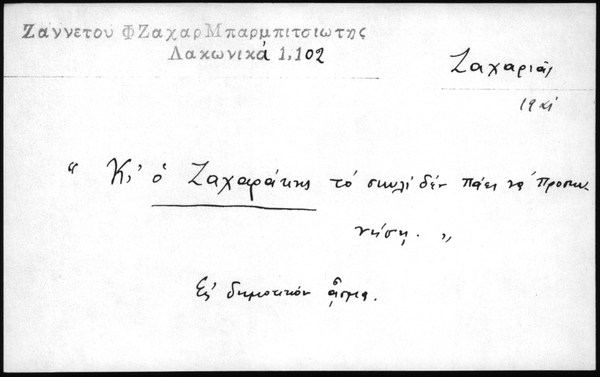 Ζαννετου Φ Ζαχαρ Μπαρμπιτσιωτης
Λακωνικά 1,102
Ζαχαριᾶς
"Κι' ὁ Ζαχαράκης τὸ σκυλὶ δὲν πάει νὰ προσκυ-
νήση."
Εἰς δημοτικὸν ᾆσμα.